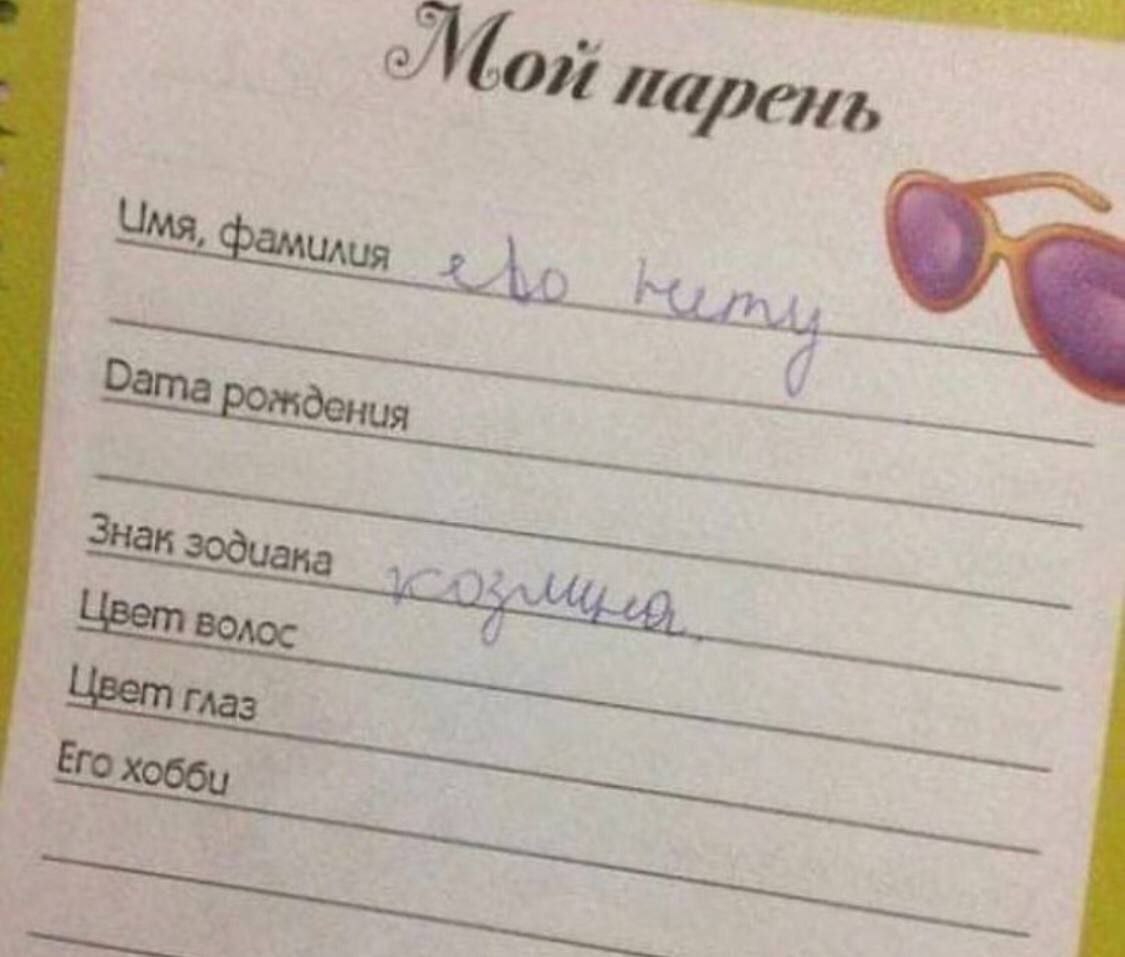 Мой парень
Имя, фамилия ево нету
Дата рождения
Знак зодиака козлина.
Цвет волос
Цвет глаз
Его хобби